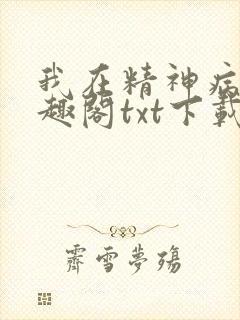 我在精神病
趣阁txt下载
霽雪夢殤